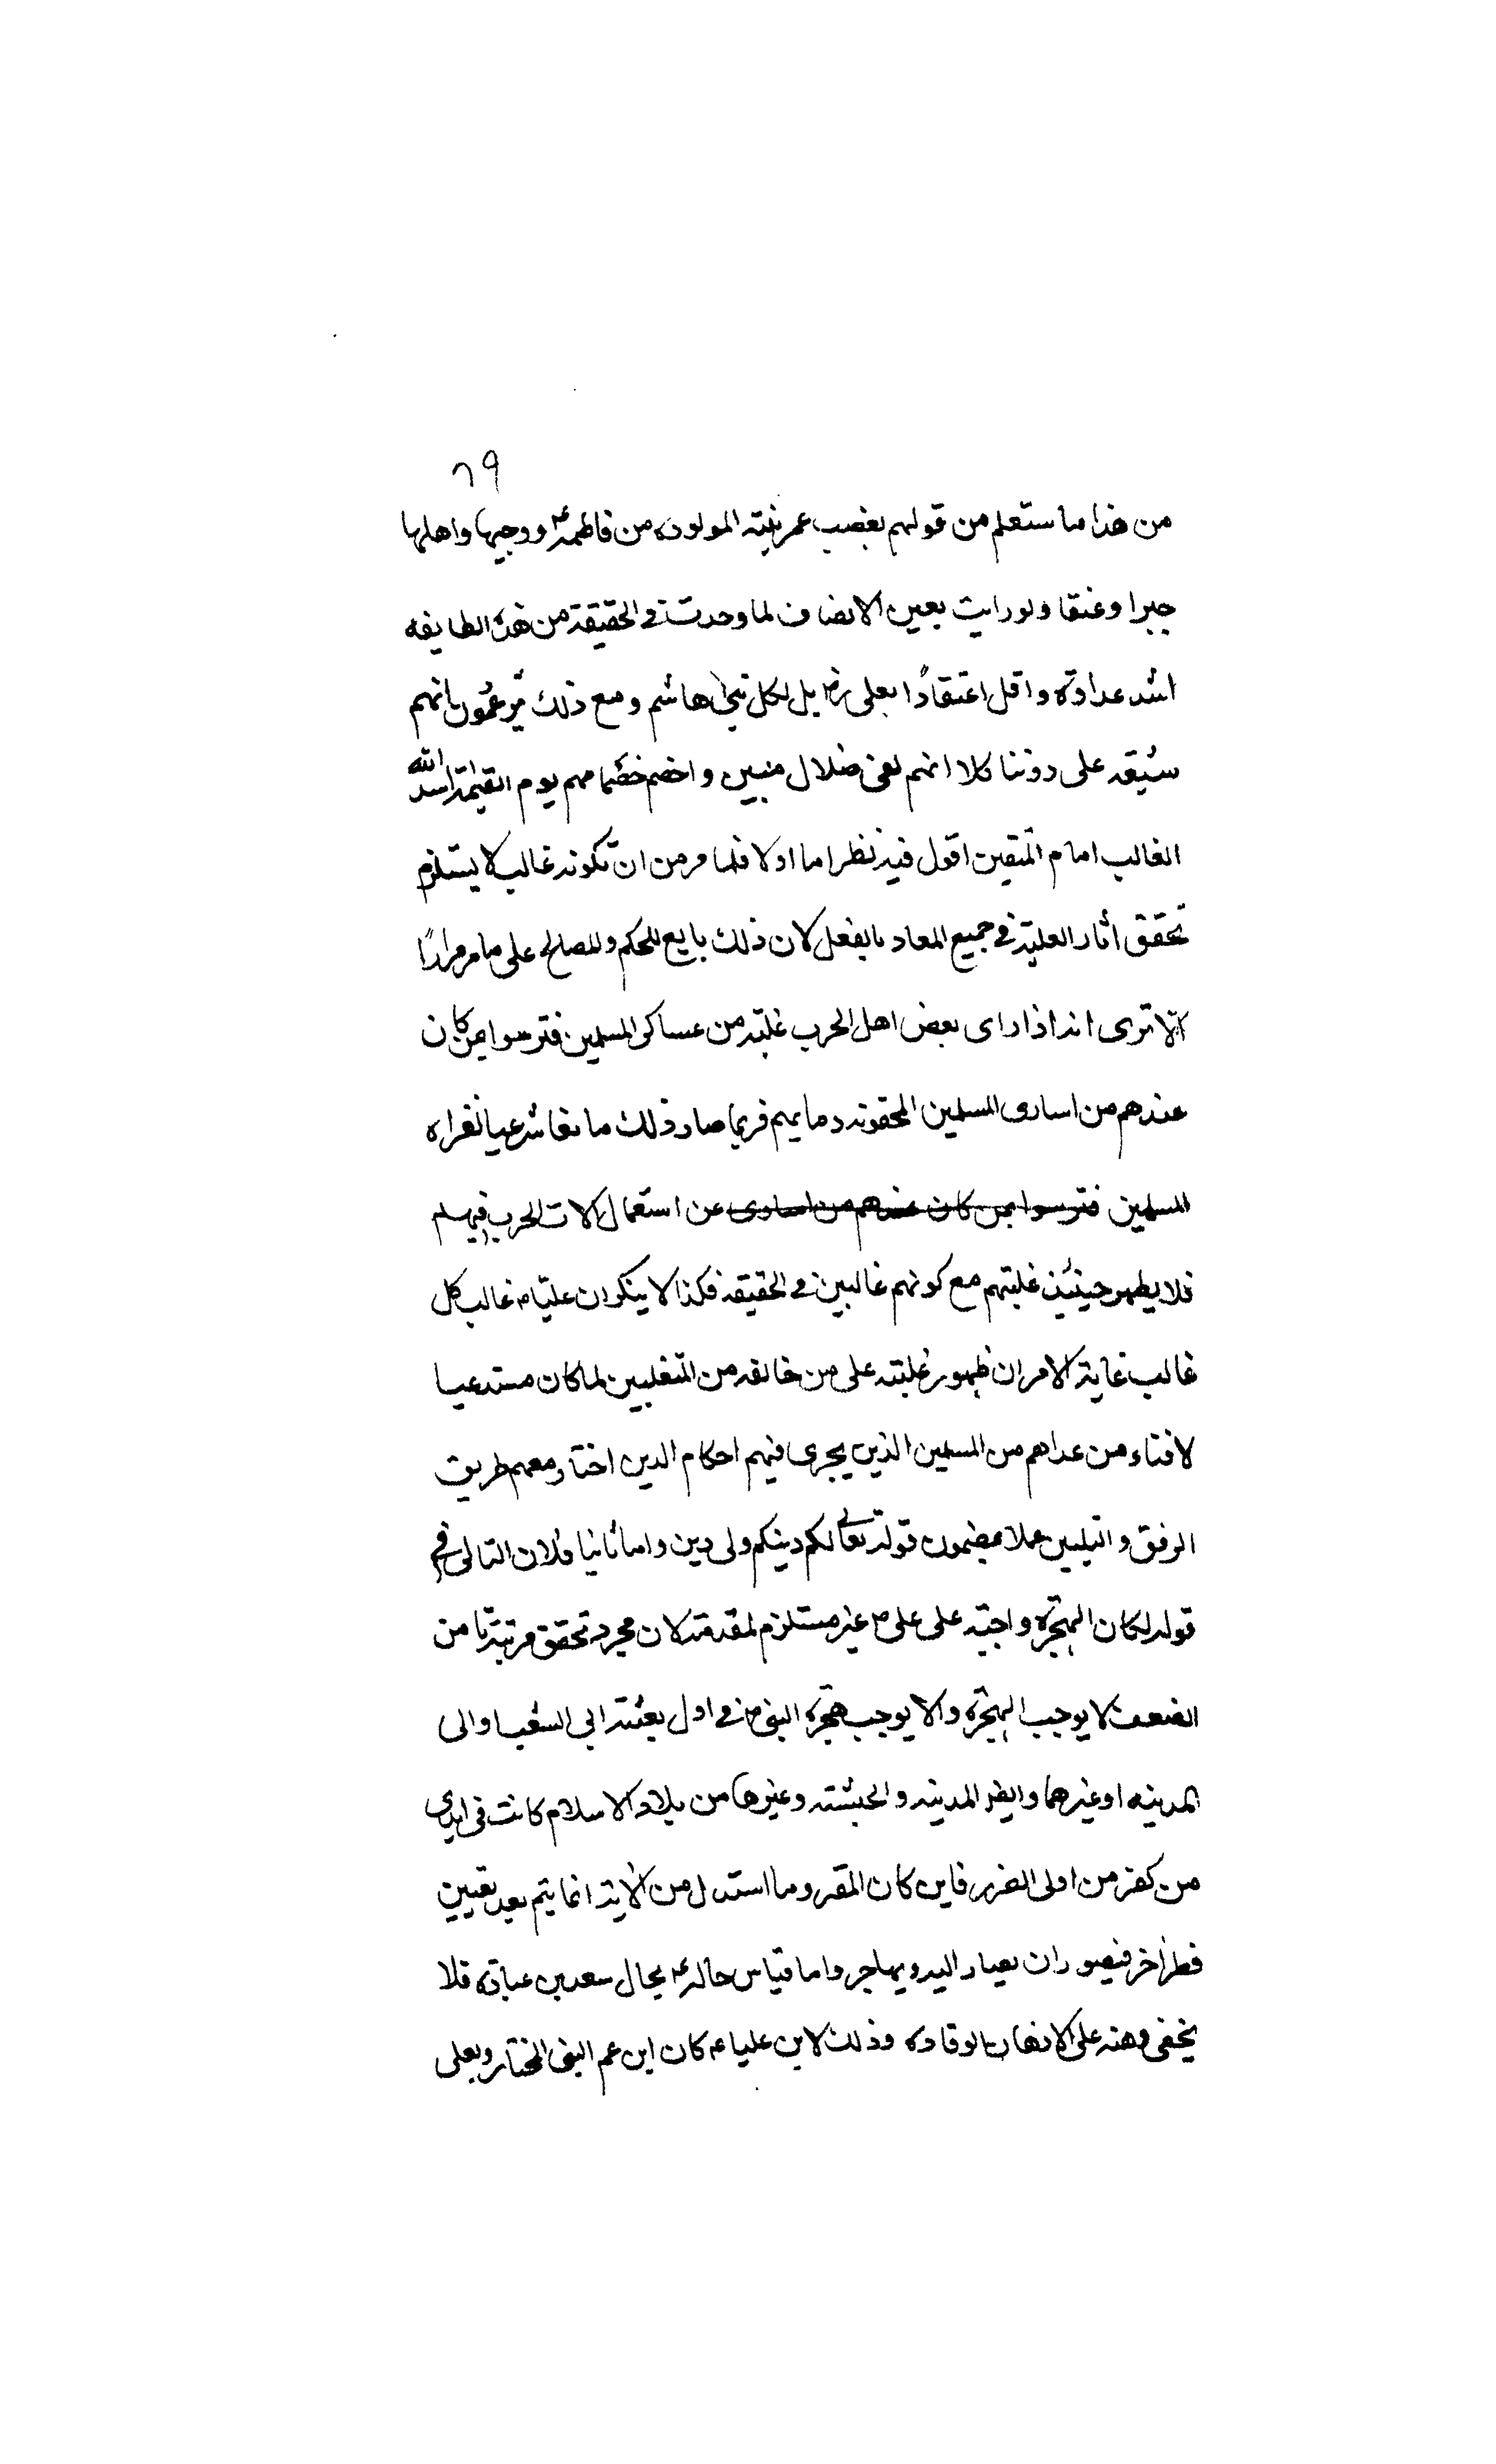 ٦٩
من هذا ما ستعلم من قولهم بغصب عمر بنته المولوده من فاطمة ع وزوجيها واهلها
جبرا وعنقا ولو رايت بعين الانصاف لما وجدت في الحقيقة من هذه الطايفه
اشد عداوة واقل اعتقادًا بعلى رض بل لكل بني هاشم ومع ذلك يزعمون انهم
شيعه على دوننا كلا انهم لفى ضلال مبين واخصم خصمائهم يوم القيمة اسد الله
الغالب امام المتقين اقول فيه نظر اما اولا فلما مر من ان كونه غالب لا يستلزم
تحقق اثار الغلبة في جميع المعاد بالفعل لان ذلك تابع للحكم والمصالح على ما مر مرارًا
الا ترى انه اذا راى بعض اهل الحرب غلبة من عساكر المسلمين فترسوا بمن كان
عندهم من اسارى المسلمين المحقونه دمايهم فربما صار ذلك مانعا شرعيا لغزاه
المسلمين فترسوا بمن كان عندهم من اسارى عن استعمال الات الحرب فيهم
فلا يظهر حينئذ غلبتهم مع كونهم غالبين في الحقيقه فكذا لا ينكر ان عليّا ع غالب كل
غالب غاية الامر ان ظهور غلبته على من خالفه من المتغلبين لما كان مستدعيا
لافناء من عداهم من المسلمين الذين يجرى فيهم احكام الدين اختار معهم طريق
الرفق والتليين عملا بمضمون قوله تعالى لكم دينكم ولى دين واما ثانيا فلان التالى في
قوله لكان الهجرة واجبة على على ع غير مستلزم لمقدمة لان مجرد تحقق مرتبة ما من
الضعف لا يوجب الهجرة والا يوجب هجرة النبى ص في اول بعثته الى الشعب او الى
المدينه او غيرهما وايض المدينه والحبشته وغيرها من بلاد الاسلام كانت في ايدي
من كفر من اولى الضرر فاين كان المقر وما استدل من الاية انما يتم بعد تعيين
قطر اخر فيصور ان يصار اليه ويهاجر واما قياس حاله ع بحال سعد بن عبادة فلا
يخفى وهنه على الاذهان الوقاده وذلك لان عليا ع كان ابن عم النبى المختار وبعلى